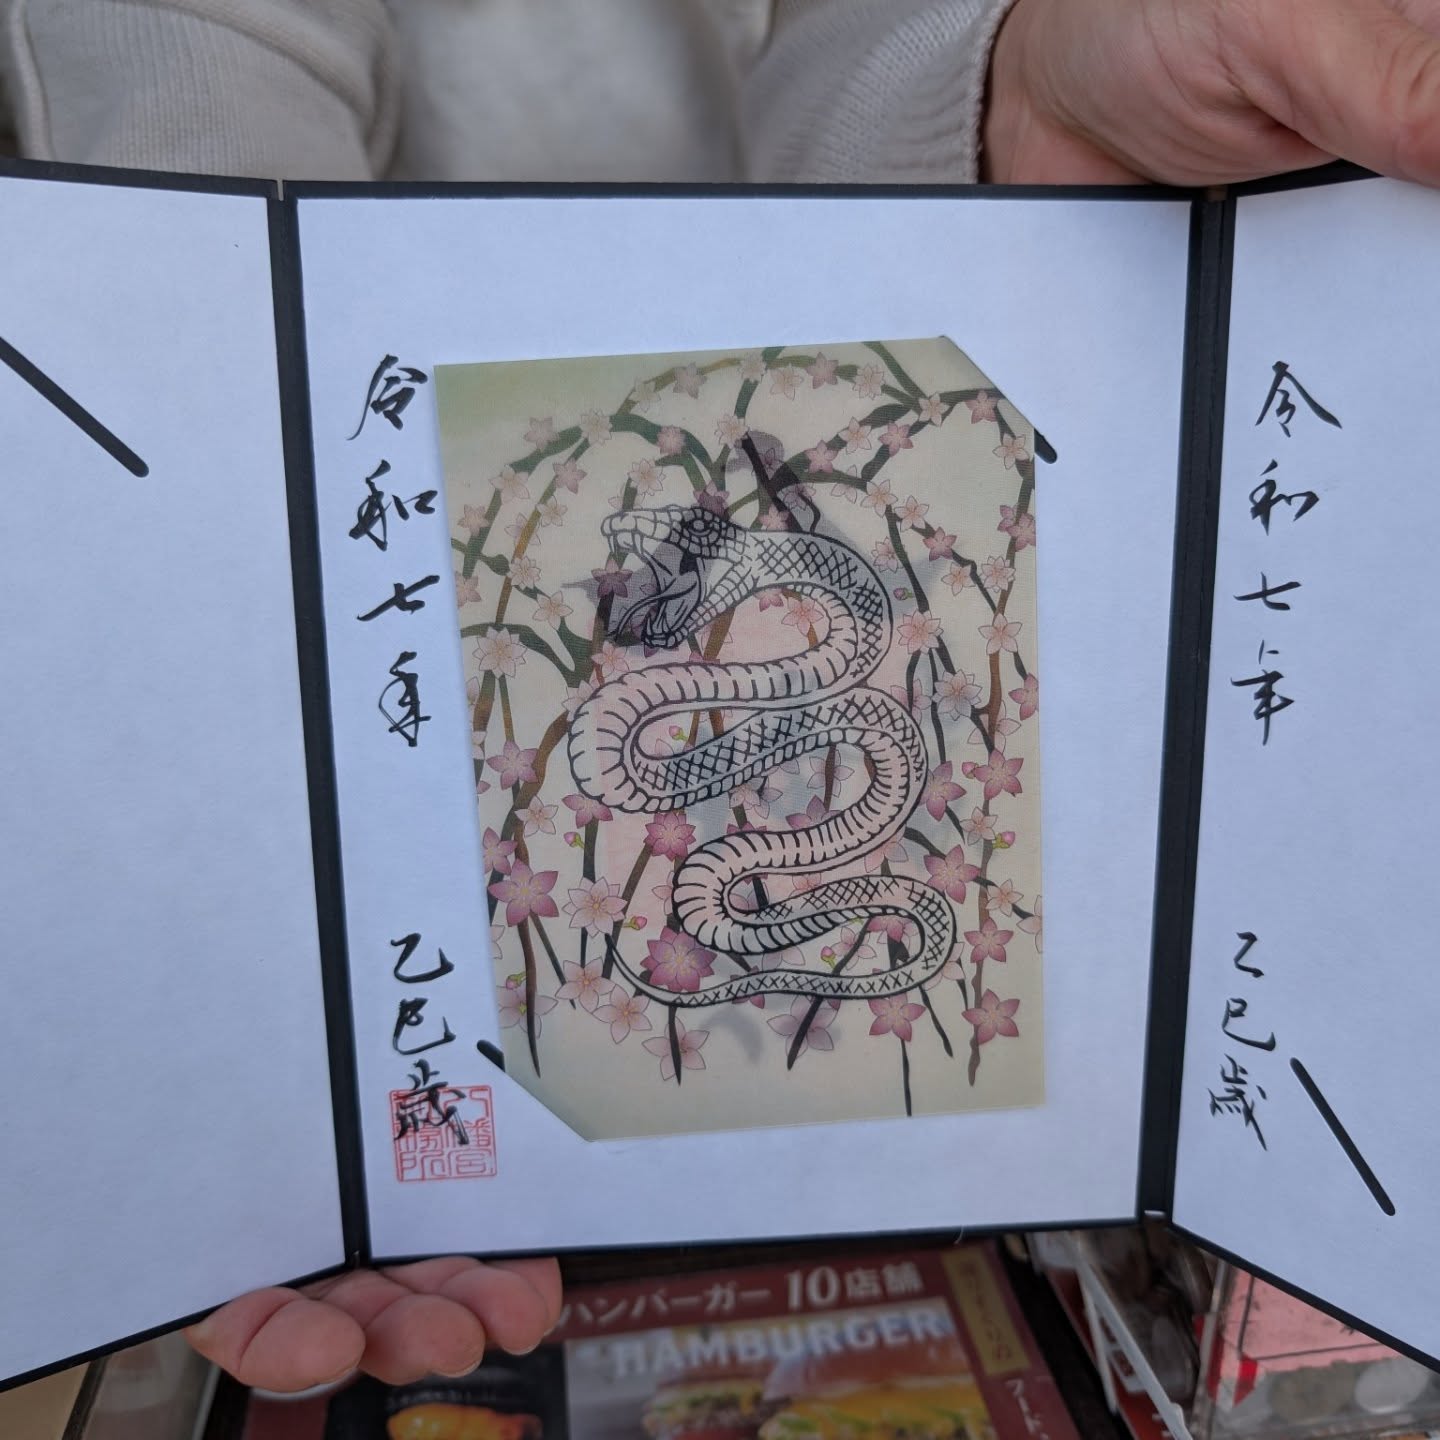 令和七年
乙巳歳
令和七年
乙巳歳
八幡宮
ハンバーガー 10店舗
HAMBURGER